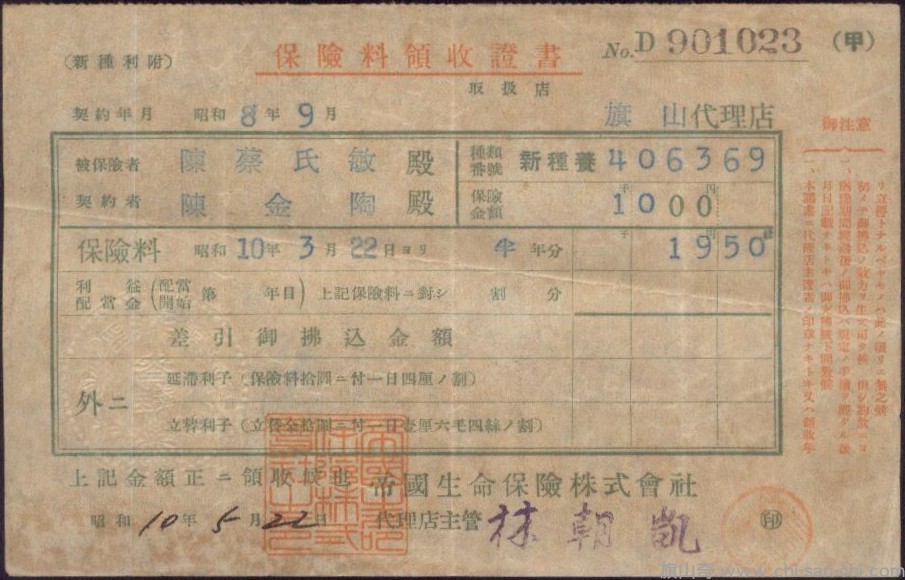 (新種利附)
保險料領收證書
No. D 901023
(甲)
取扱店
契約年月 昭和8年9月
旗山代理店
被保險者 陳蔡氏敏 殿
種類番號 新種養 406369
契約者 陳金陶 殿
保險金額 千 1000 円
保險料 昭和10年3月22日ヨリ 半年分 千 1950 円 錢
利益配當金(配當開始 第 年目)上記保險料ニ對シ 割 分
差引御拂込金額
外ニ
延滯利子(保險料拾圓ニ付一日四厘ノ割)
立替利子(立替金拾圓ニ付一日壹厘六毛四絲ノ割)
上記金額正ニ領收候也
帝國生命保險株式會社
昭和10年5月22日
代理店主管 林朝凱
印
御注意
一、本證書ニ代理店主管者ノ印章ナキトキ又ハ領收年
月日記載ナキトキハ
旗山奇 www.chi-san-chi.com